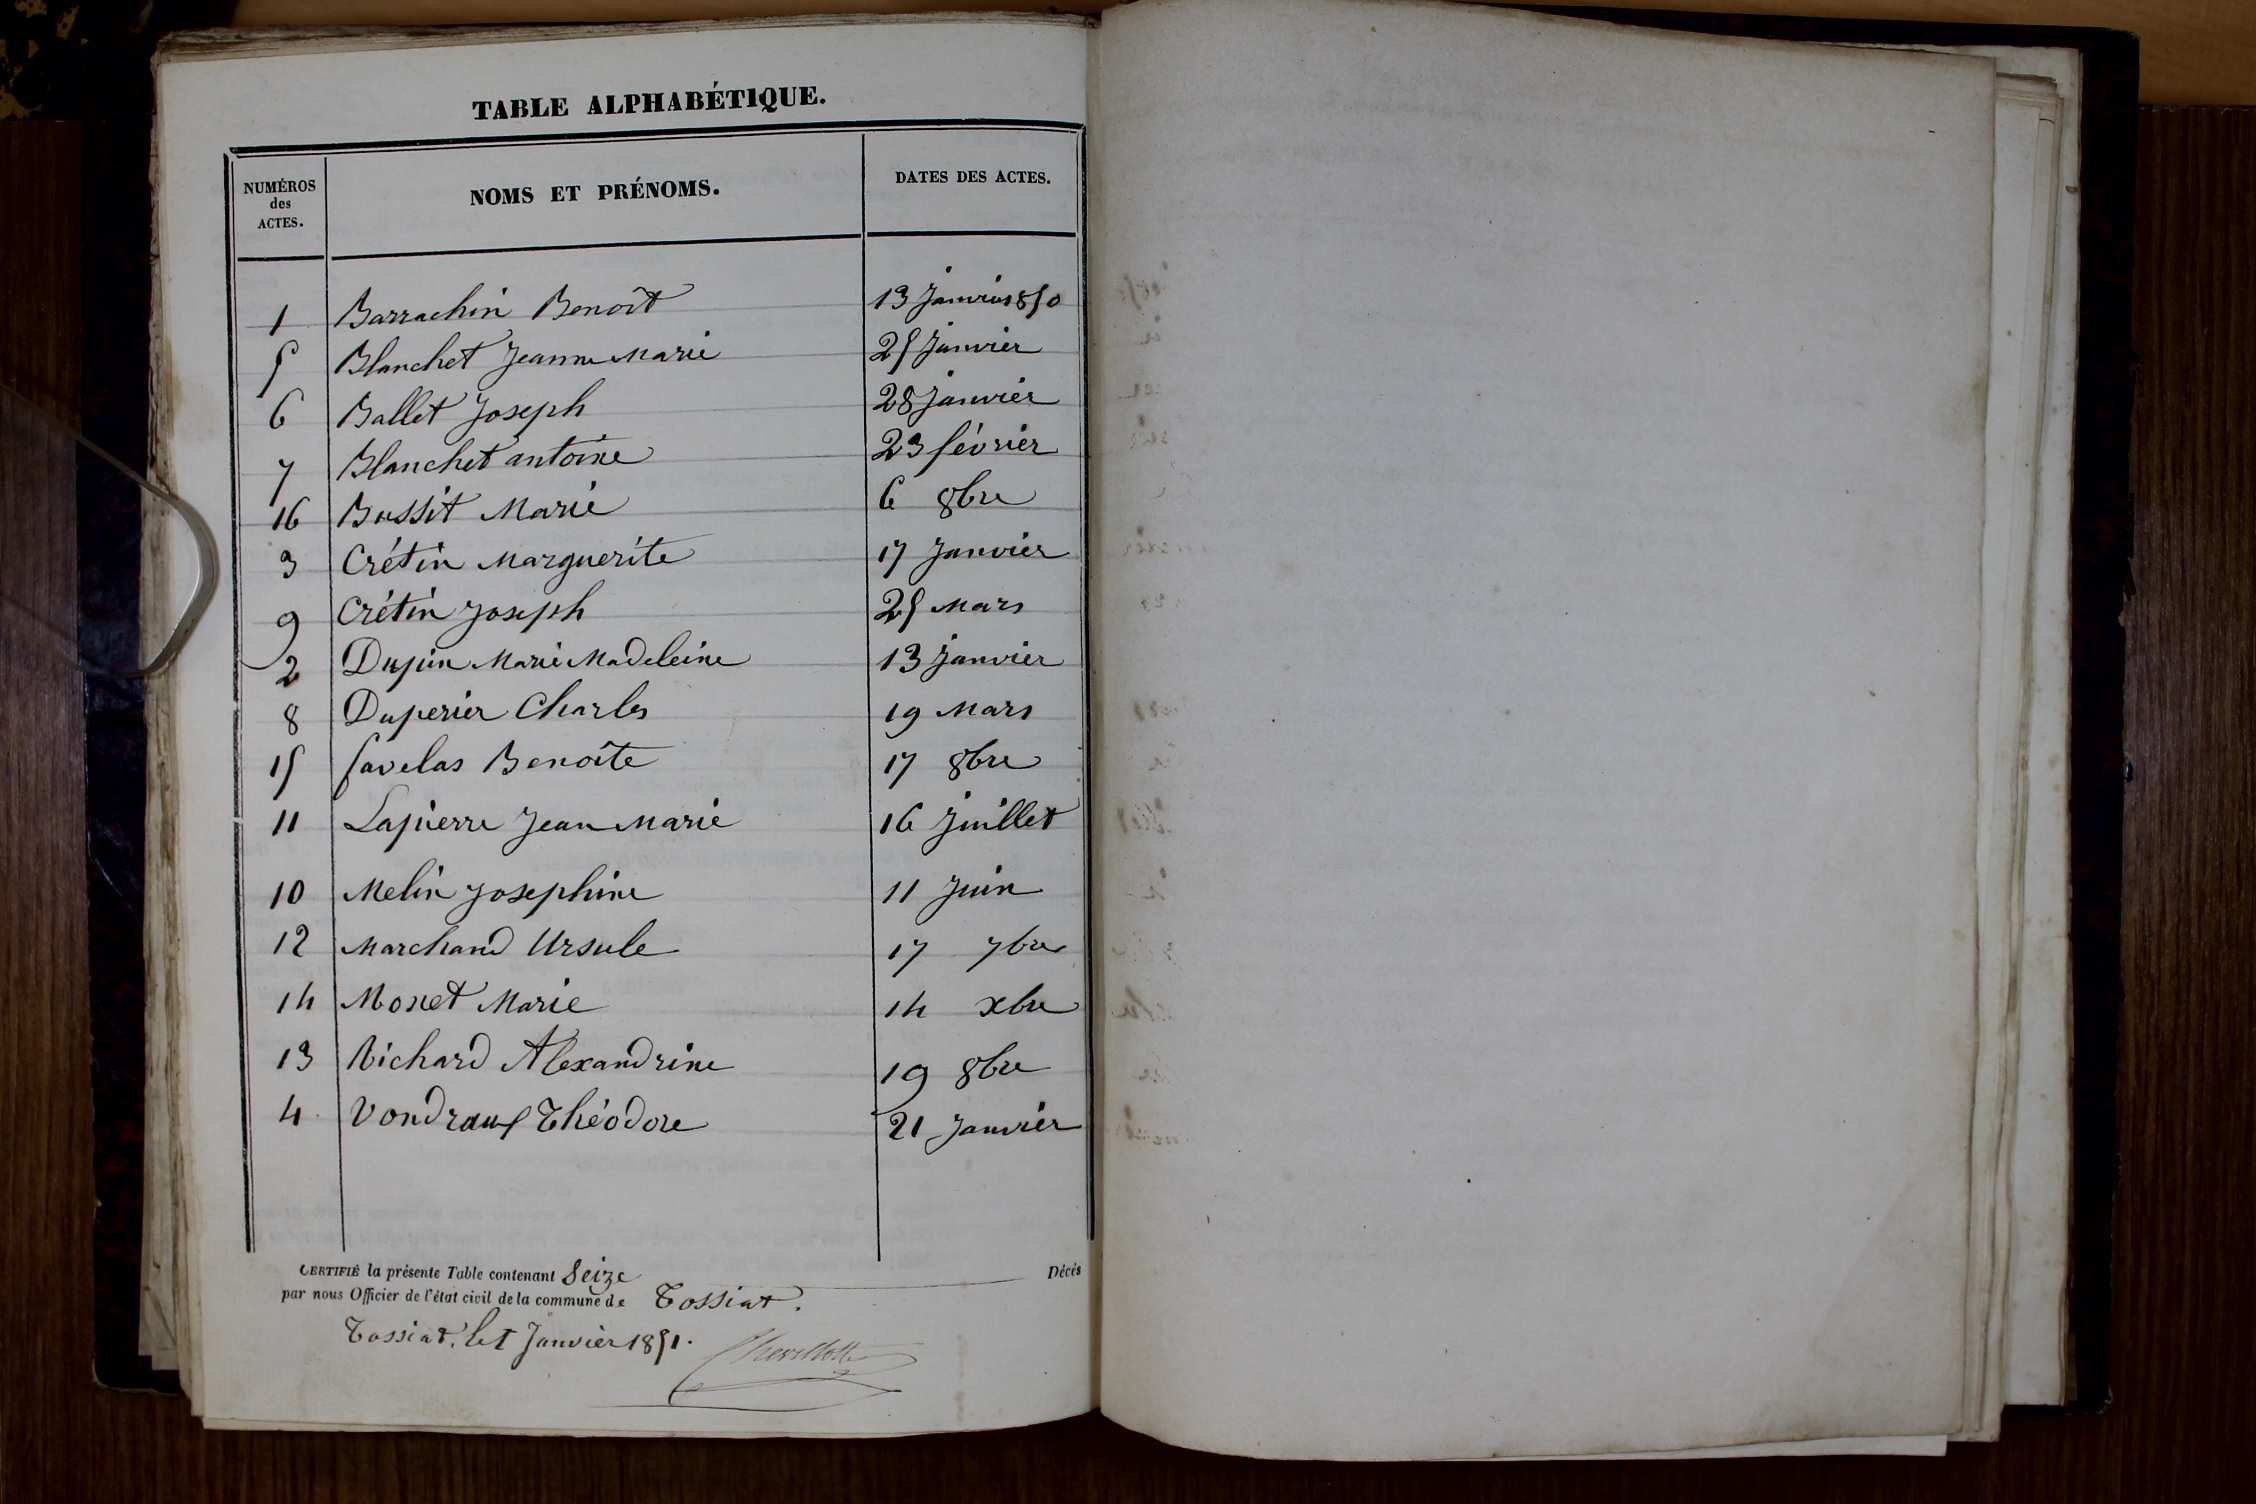 TABLE ALPHABÉTIQUE.
NUMÉROS des ACTES. NOMS ET PRÉNOMS. DATES DES ACTES.
1 Barrachin Benoît 13 Janvier 1850
5 Blanchet Jeanne Marie 25 Janvier
6 Ballet Joseph 28 Janvier
7 Blanchet antoine 23 février
16 Bussit Marie 6 8bre
3 Crétin Marguerite 17 Janvier
9 Crétin Joseph 25 Mars
2 Dupin Marie Madeleine 13 Janvier
8 Duperier Charles 19 Mars
15 favelas Benoîte 17 8bre
11 Lapierre Jean Marie 16 Juillet
10 Melin Josephine 11 Juin
12 Marchand Ursule 17 7bre
14 Monet Marie 14 xbre
13 Richard Alexandrine 19 8bre
4 Vondraux Théodore 21 Janvier
CERTIFIÉ la présente Table contenant Seize Décès
par nous Officier de l'état civil de la commune de Tossiat.
Tossiat, le 1 Janvier 1851.